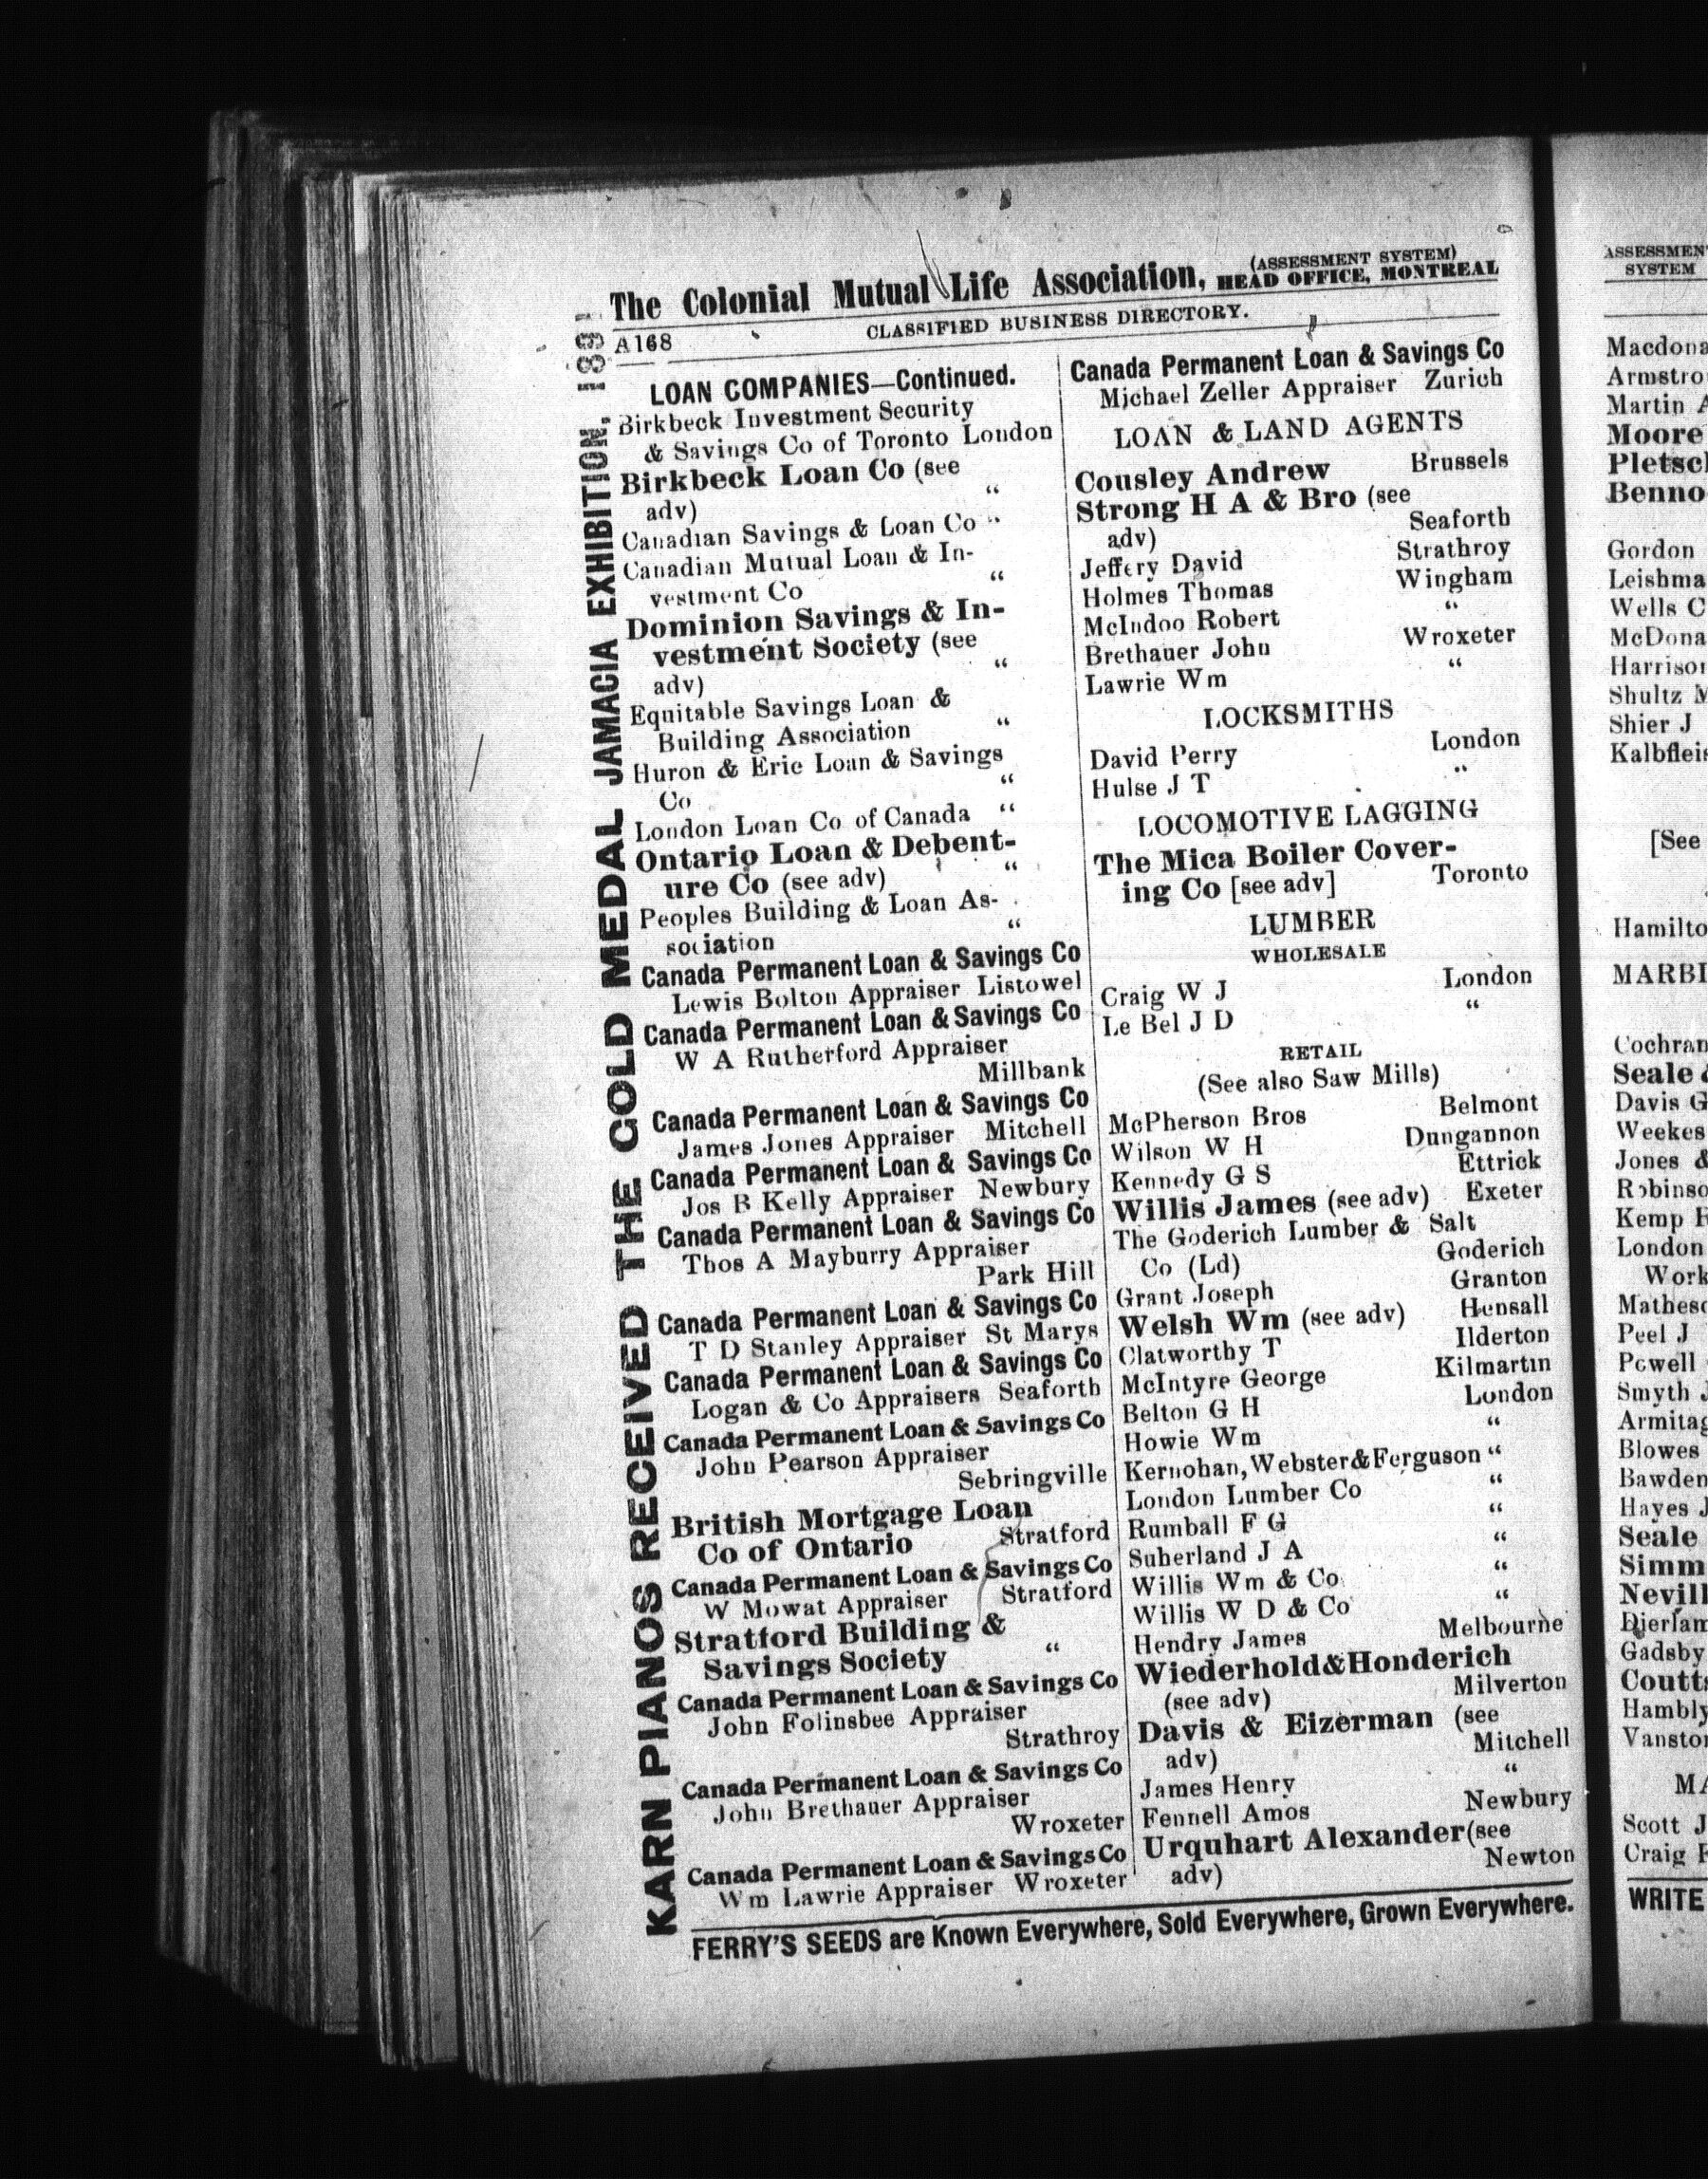 The Colonial Mutual Life Association, (ASSESSMENT SYSTEM) HEAD OFFICE, MONTREAL
A168 CLASSIFIED BUSINESS DIRECTORY.
KARN PIANOS RECEIVED THE GOLD MEDAL JAMACIA EXHIBITION. 1891
LOAN COMPANIES—Continued.
Birkbeck Investment Security
& Savings Co of Toronto London
Birkbeck Loan Co (see
adv) “
Canadian Savings & Loan Co “
Canadian Mutual Loan & In-
vestment Co “
Dominion Savings & In-
vestment Society (see
adv) “
Equitable Savings Loan &
Building Association “
Huron & Erie Loan & Savings
Co “
London Loan Co of Canada “
Ontario Loan & Debent-
ure Co (see adv) “
Peoples Building & Loan As-
sociation “
Canada Permanent Loan & Savings Co
Lewis Bolton Appraiser Listowel
Canada Permanent Loan & Savings Co
W A Rutherford Appraiser
Millbank
Canada Permanent Loan & Savings Co
James Jones Appraiser Mitchell
Canada Permanent Loan & Savings Co
Jos B Kelly Appraiser Newbury
Canada Permanent Loan & Savings Co
Thos A Mayburry Appraiser
Park Hill
Canada Permanent Loan & Savings Co
T D Stanley Appraiser St Marys
Canada Permanent Loan & Savings Co
Logan & Co Appraisers Seaforth
Canada Permanent Loan & Savings Co
John Pearson Appraiser
Sebringville
British Mortgage Loan
Co of Ontario Stratford
Canada Permanent Loan & Savings Co
W Mowat Appraiser Stratford
Stratford Building &
Savings Society “
Canada Permanent Loan & Savings Co
John Folinsbee Appraiser
Strathroy
Canada Permanent Loan & Savings Co
John Brethauer Appraiser
Wroxeter
Canada Permanent Loan & Savings Co
Wm Lawrie Appraiser Wroxeter
Canada Permanent Loan & Savings Co
Michael Zeller Appraiser Zurich
LOAN & LAND AGENTS
Cousley Andrew Brussels
Strong H A & Bro (see
adv) Seaforth
Jeffery David Strathroy
Holmes Thomas Wingham
McIndoo Robert “
Brethauer John Wroxeter
Lawrie Wm “
LOCKSMITHS
David Perry London
Hulse J T “
LOCOMOTIVE LAGGING
The Mica Boiler Cover-
ing Co [see adv] Toronto
LUMBER
WHOLESALE
Craig W J London
Le Bel J D “
RETAIL
(See also Saw Mills)
McPherson Bros Belmont
Wilson W H Dungannon
Kennedy G S Ettrick
Willis James (see adv) Exeter
The Goderich Lumber & Salt
Co (Ld) Goderich
Grant Joseph Granton
Welsh Wm (see adv) Hensall
Clatworthy T Ilderton
McIntyre George Kilmartin
Belton G H London
Howie Wm “
Kernohan, Webster&Ferguson “
London Lumber Co “
Rumball F G “
Suherland J A “
Willis Wm & Co “
Willis W D & Co “
Hendry James Melbourne
Wiederhold&Honderich
(see adv) Milverton
Davis & Eizerman (see
adv) Mitchell
James Henry “
Fennell Amos Newbury
Urquhart Alexander(see
adv) Newton
FERRY'S SEEDS are Known Everywhere, Sold Everywhere, Grown Everywhere.
SYSTEM
Martin
Moore
Gordon
Wells C
Shier J
[See
Seale
Davis G
Weekes
Jones &
London
Work
Peel J
Powell
Smyth J
Blowes
Hayes J
Seale
Gadsby
Hambly
Scott J
Craig
WRITE